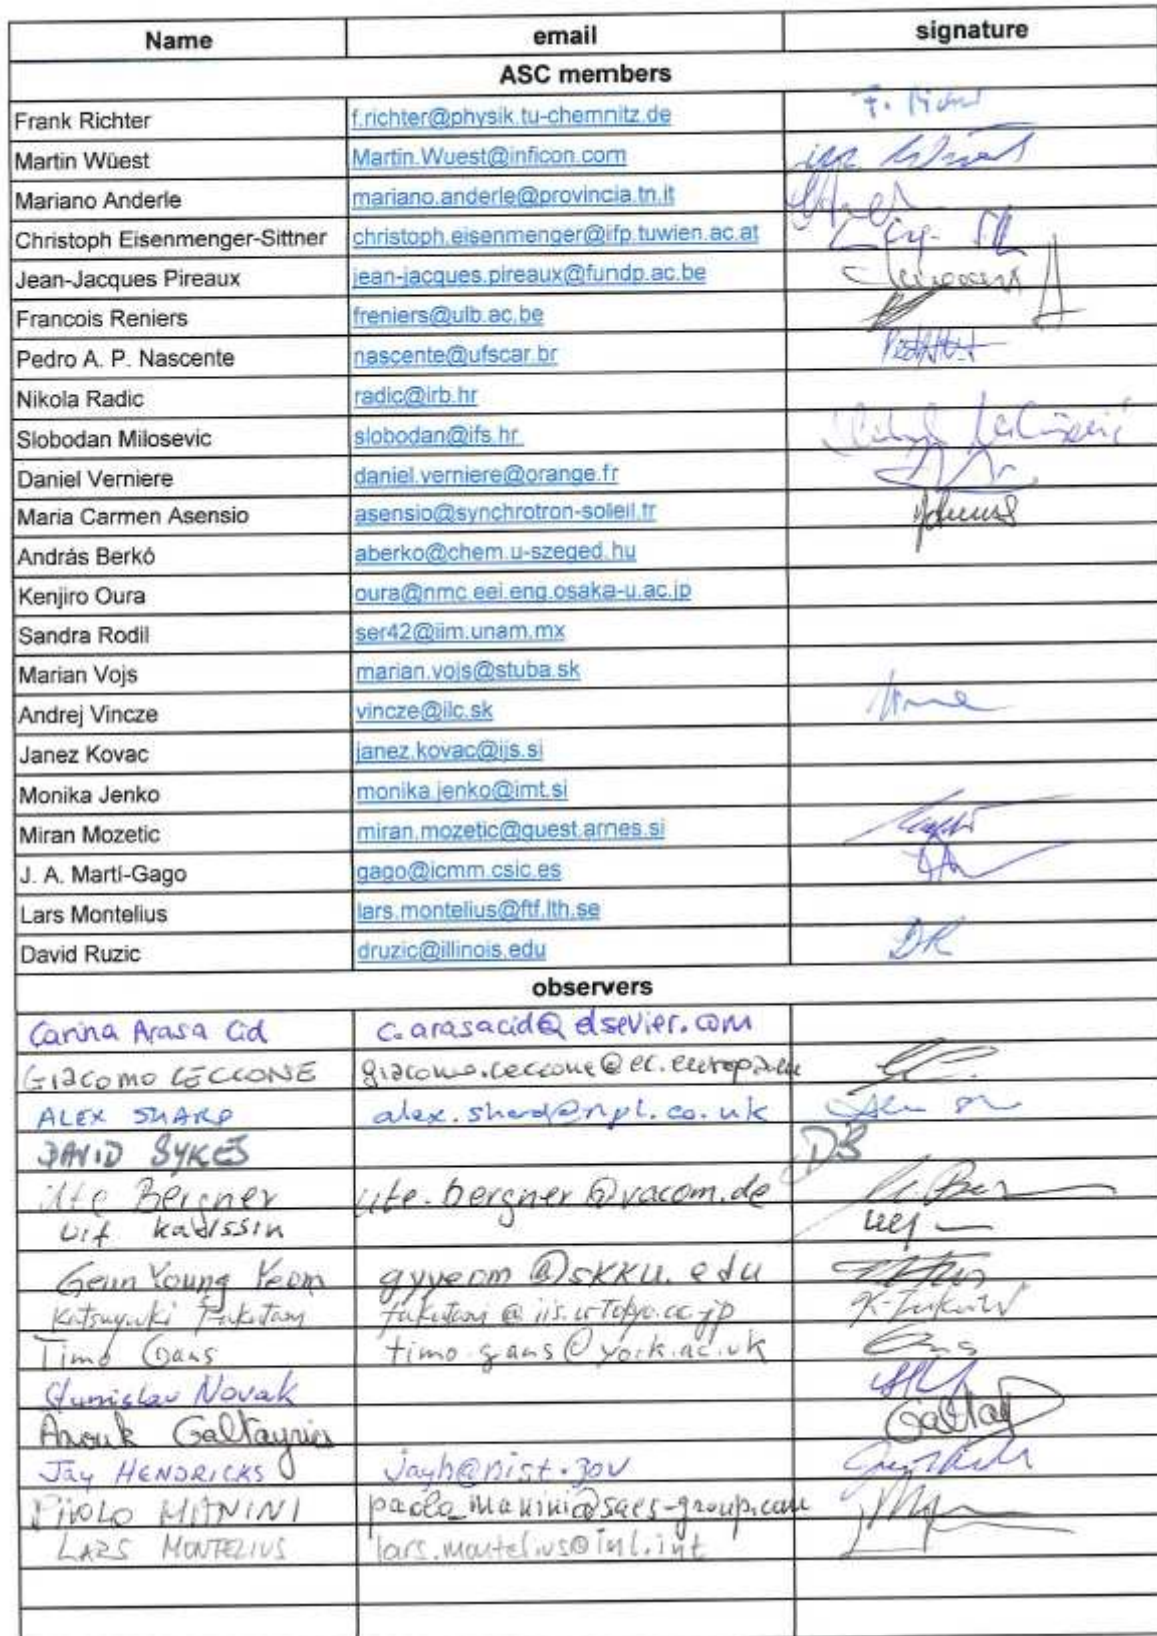 Name email signature
ASC members
Frank Richter f.richter@physik.tu-chemnitz.de
Martin Wüest Martin.Wuest@inficon.com
Mariano Anderle mariano.anderle@provincia.tn.it
Christoph Eisenmenger-Sittner christoph.eisenmenger@ifp.tuwien.ac.at
Jean-Jacques Pireaux jean-jacques.pireaux@fundp.ac.be
Francois Reniers freniers@ulb.ac.be
Pedro A. P. Nascente nascente@ufscar.br
Nikola Radic radic@irb.hr
Slobodan Milosevic slobodan@ifs.hr
Daniel Verniere daniel.verniere@orange.fr
Maria Carmen Asensio asensio@synchrotron-soleil.fr
András Berkó aberko@chem.u-szeged.hu
Kenjiro Oura oura@nmc.eei.eng.osaka-u.ac.jp
Sandra Rodil ser42@iim.unam.mx
Marian Vojs marian.vojs@stuba.sk
Andrej Vincze vincze@ilc.sk
Janez Kovac janez.kovac@ijs.si
Monika Jenko monika.jenko@imt.si
Miran Mozetic miran.mozetic@guest.arnes.si
J. A. Martí-Gago gago@icmm.csic.es
Lars Montelius lars.montelius@ftf.lth.se
David Ruzic druzic@illinois.edu DR
observers
Carina Arasa Cid c.arasacid@elsevier.com
GIACOMO CECCONE giacomo.ceccone@ec.europa.eu
ALEX SHARD alex.shard@npl.co.uk
DAVID SYKES DS
Ute Bergner ute.bergner@vacom.de
Geun Young Yeom gyyeom@skku.edu
Katsuyuki Fukutani fukutani@iis.u-tokyo.ac.jp
Timo Gans timo.gans@york.ac.uk
Stanislav Novak
Anouk Galtayries
Jay HENDRICKS jayh@nist.gov
PAOLO MANINI paolo_manini@saes-group.com
LARS MONTELIUS lars.montelius@inl.int